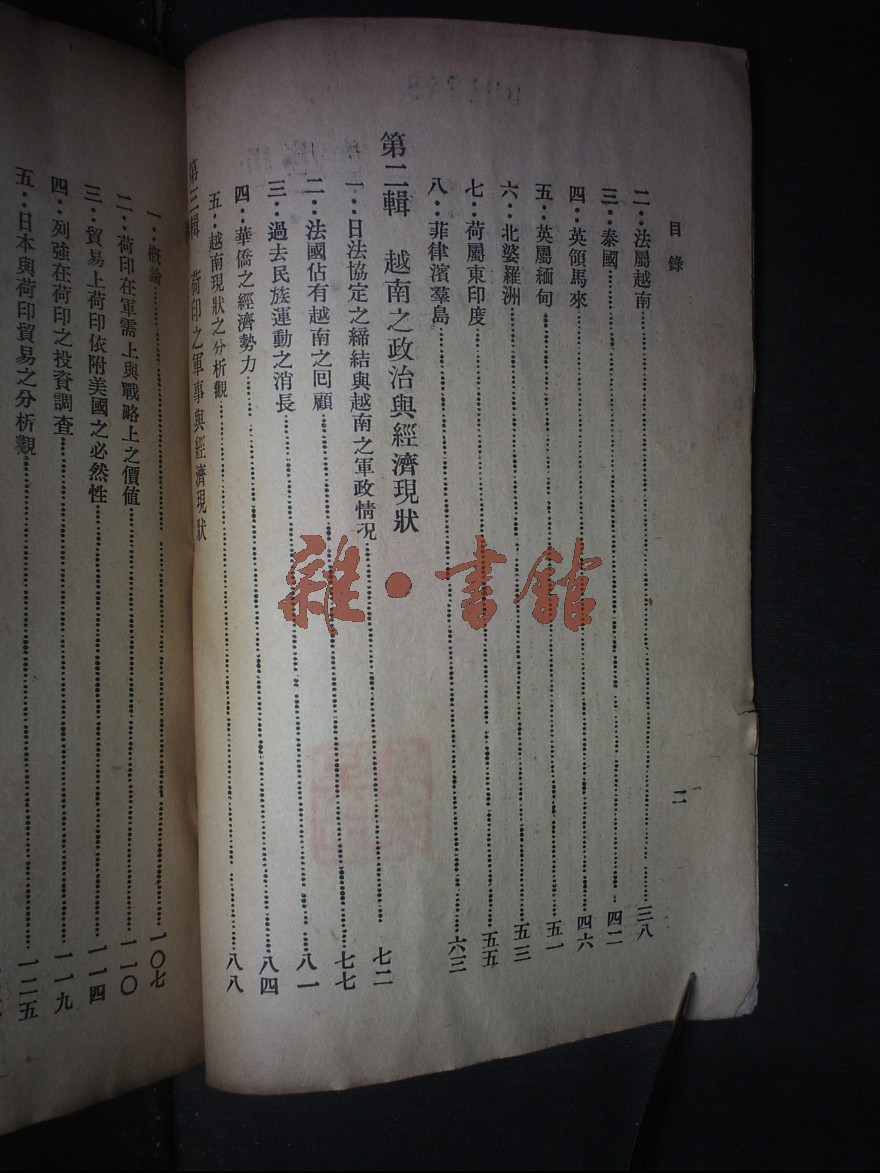 目錄
二
二：法屬越南……三八
三：泰國……四二
四：英領馬來……四六
五：英屬緬甸……五一
六：北婆羅洲……五三
七：荷屬東印度……五五
八：菲律濱羣島……六三
第二輯　越南之政治與經濟現狀
一：日法協定之締結與越南之軍政情況……七二
二：法國佔有越南之囘顧……七七
三：過去民族運動之消長……八一
四：華僑之經濟勢力……八四
五：越南現狀之分析觀……八八
第三輯　荷印之軍事與經濟現狀
一：概論……一〇七
二：荷印在軍需上與戰略上之價値……一一〇
三：貿易上荷印依附美國之必然性……一一四
四：列強在荷印之投資調査……一一九
五：日本與荷印貿易之分析觀……一二五
雜·書館